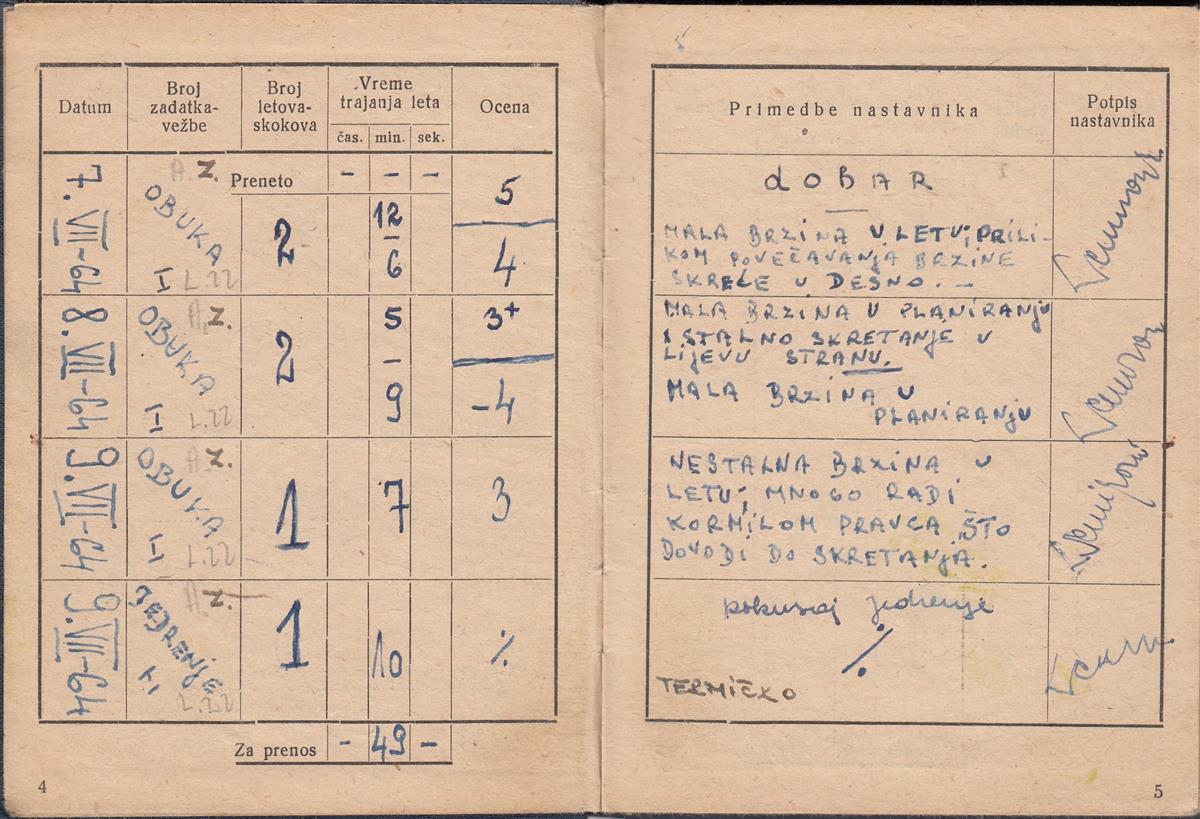 Datum
Broj
zadatka-
vežbe
Broj
letova-
skokova
Vreme
trajanja leta
čas. min. sek.
Ocena
Preneto - - -
7. VII-64
A. Z.
OBUKA
I L.22
2
12
–
6
5
4
8. VII-64
A. Z.
OBUKA
I L.22
2
5
–
9
3+
-4
9. VII-64
A. Z.
OBUKA
I L.22
1
7
3
9. VII-64
A. Z.
JEDRENJE
L.22
1
10
%
Za prenos - 49 -
4
5
Primedbe nastavnika
Potpis
nastavnika
dOBAR
MALA BRZINA U LETU; PRILI-
KOM POVEČAVANJA BRZINE
SKREĆE U DESNO. –
MALA BRZINA U PLANIRANJU
I STALNO SKRETANJE U
LIJEVU STRANU.
MALA BRZINA U
PLANIRANJU
NESTALNA BRZINA U
LETU; MNOGO RADI
KORMILOM PRAVCA ŠTO
DOVODI DO SKRETANJA.
pokusaj jedrenje
%
TERMIČKO
5